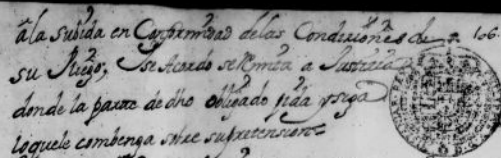 âla subida en Conformidad delas Condiciones de 106.
su Riego, Se Acordo se Remita a Justicia
donde la parte de dho obligado pida y siga
loquele combenga sobre supretension=